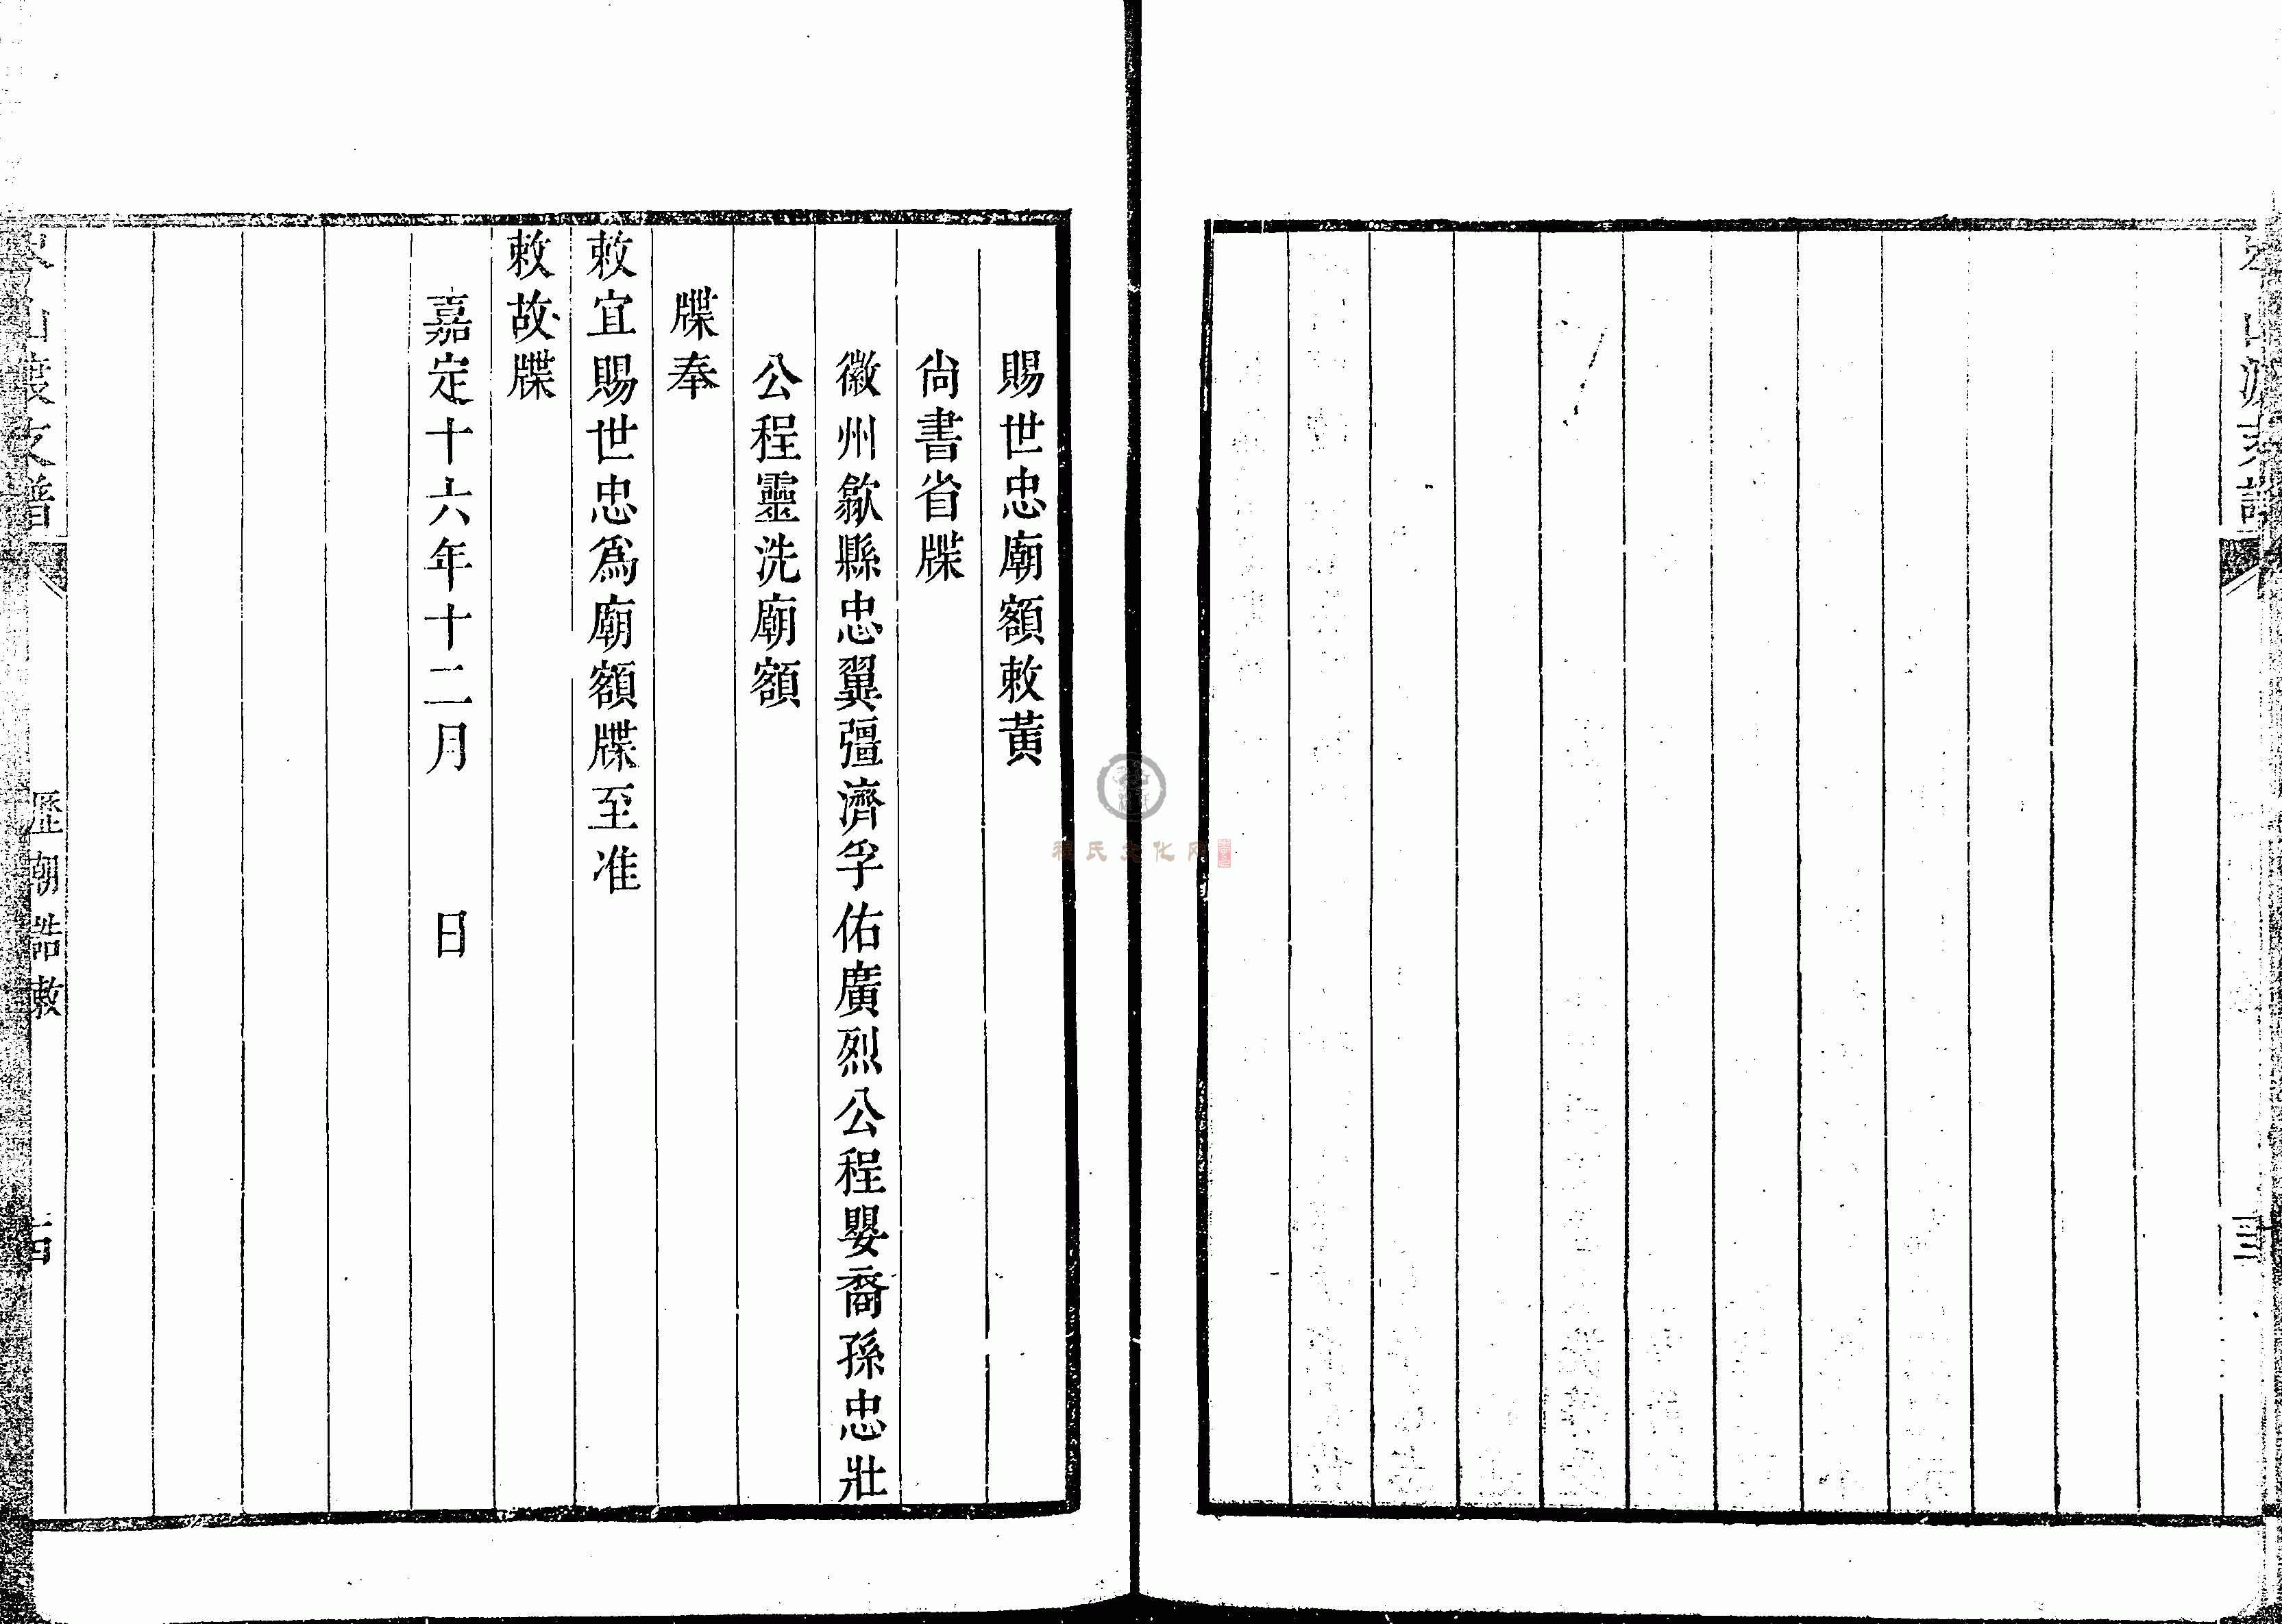 賜世忠廟額敕黃
尙書省牒
徽州歙縣忠翼彊濟孚佑廣烈公程嬰裔孫忠壯
公程靈洗廟額
牒奉
敕宜賜世忠爲廟額牒至准
敕故牒
嘉定十六年十二月　日
山渡支譜
歷朝誥敕
程氏文化网